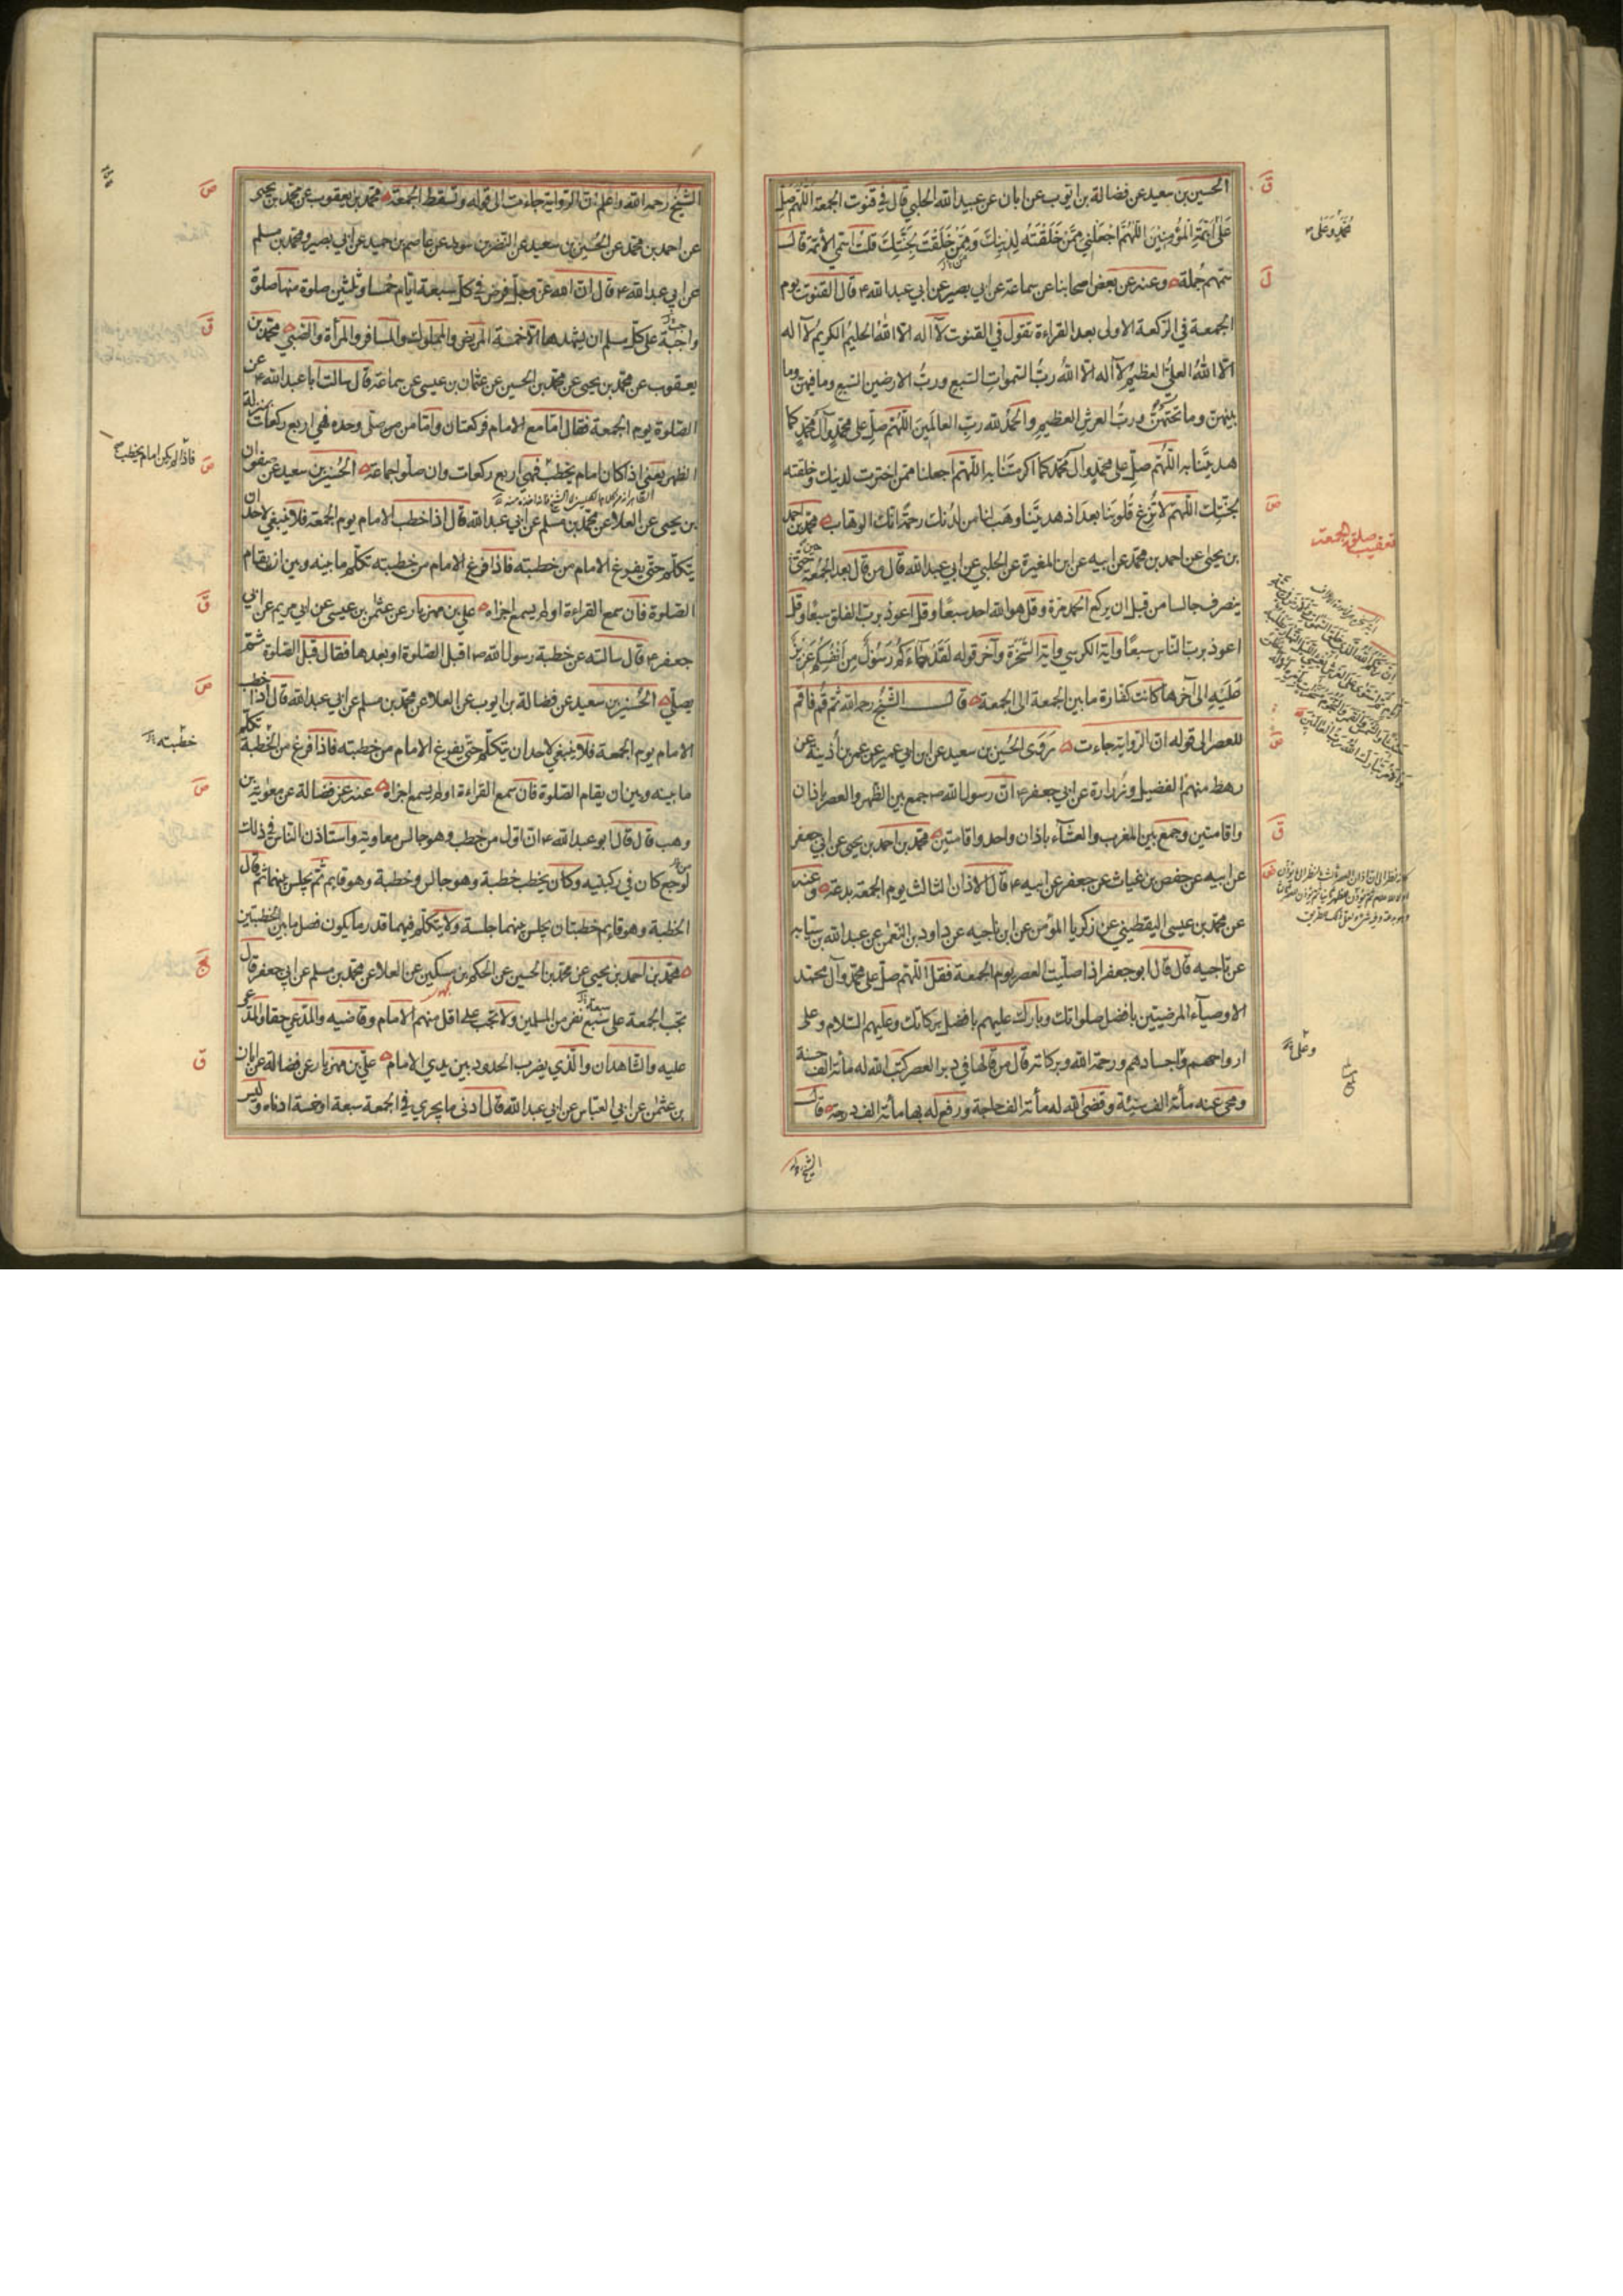 الحسين بن سعيد عن فضالة بن ايوب عن ابان عن عبيد الله الحلبي قال في قنوت الجمعة اللهم صل
على ائمة المؤمنين اللهم اجعلني ممن خلقته لدينك وممن خلقت لجنتك قلت اسمي الائمة قال
سمهم جملة وعنه عن بعض اصحابنا عن سماعة عن ابي بصير عن ابي عبد الله ع قال القنوت يوم
الجمعة في الركعة الاولى بعد القراءة تقول في القنوت لا اله الا الله الحليم الكريم لا اله
الا الله العلي العظيم لا اله الا الله رب السموات السبع ورب الارضين السبع وما فيهن وما
بينهن وما تحتهن ورب العرش العظيم والحمد لله رب العالمين اللهم صل على محمد وآل محمد كما
هديتنا به اللهم صل على محمد وال محمد كما اكرمتنا به اللهم اجعلنا ممن اخترت لدينك وخلقته
لجنتك اللهم لا تزغ قلوبنا بعد اذ هديتنا وهب لنا من لدنك رحمة انك انت الوهاب محمد بن احمد
بن يحيى عن احمد بن محمد عن ابيه عن ابن المغيرة عن الحلبي عن ابي عبد الله قال من قال بعد الجمعة حين
ينصرف جالسا من قبل ان يركع الحمد مرة وقل هو الله احد سبعا وقل اعوذ برب الفلق سبعا وقل
اعوذ برب الناس سبعا وآية الكرسي وآية السخرة وآخر قوله لقد جاءكم رسول من انفسكم عزيز
عليه الى آخرها كانت كفارة ما بين الجمعة الى الجمعة قال الشيخ رحمه الله ثم قم فاقم
للعصر الى قوله ان الرواية جاءت روى الحسين بن سعيد عن ابن ابي عمير عن عمر بن أذينة عن
رهط منهم الفضيل وزرارة عن ابي جعفر ع ان رسول الله ص جمع بين الظهر والعصر باذان
واقامتين وجمع بين المغرب والعشاء باذان واحد واقامتين محمد بن احمد بن يحيى عن ابي جعفر
عن ابيه عن حفص بن غياث عن جعفر عن ابيه ع قال الاذان الثالث يوم الجمعة بدعة وعنه
عن محمد بن عيسى اليقطيني عن زكريا المؤمن عن ابن ناجيه عن داود بن النعمن عن عبد الله بن سيابه
عن ناجيه قال قال ابو جعفر اذا صليت العصر يوم الجمعة فقل اللهم صل على محمد وآل محمد
الاوصياء المرضيين بافضل صلواتك وبارك عليهم بافضل بركاتك وعليهم السلام وعلى
ارواحهم واجسادهم ورحمة الله وبركاته قال من قالها في دبر العصر كتب الله له مائة الف حسنة
ومحى عنه مائة الف سيئة وقضى الله له مائة الف حاجة ورفع له بها مائة الف درجة قال
الشيخ ره
محمد وعلى
تعقيب صلوة الجمعة
وعلى
الشيخ رحمه الله واعلم ان الرواية جاءت الى قوله وتسقط الجمعة محمد بن يعقوب عن محمد بن يحيى
عن احمد بن محمد عن الحسين بن سعيد عن النضر بن سويد عن عاصم بن حميد عن ابي بصير ومحمد بن مسلم
عن ابي عبد الله ع قال ان الله عز وجل فرض في كل سبعة ايام خمسا وثلثين صلوة منها صلوة
واجبة على كل مسلم ان يشهدها الا خمسة المريض والمملوك والمسافر والمرأة والصبي محمد بن
يعقوب عن محمد بن يحيى عن محمد بن الحسين عن عثمان بن عيسى عن سماعة قال سالت ابا عبد الله ع عن
الصلوة يوم الجمعة فقال اما مع الامام فركعتان واما من صلى وحده فهي اربع ركعات بمنزلة
الظهر يعني اذا كان امام يخطب فهي اربع ركعات وان صلوا جماعة الحسين بن سعيد عن صفوان
بن يحيى عن العلا عن محمد بن مسلم عن ابي عبد الله قال اذا خطب الامام يوم الجمعة فلا ينبغي لاحد ان
يتكلم حتى يفرغ الامام من خطبته فاذا فرغ الامام من خطبته تكلم ما بينه وبين ان يقام
الصلوة فان سمع القراءة او لم يسمع اجزاه علي بن مهزيار عن عثمن بن عيسى عن ابي مريم عن ابي
جعفر ع قال سالته عن خطبة رسول الله ص اقبل الصلوة او بعدها فقال قبل الصلوة ثم
يصلي الحسين بن سعيد عن فضالة بن ايوب عن العلا عن محمد بن مسلم عن ابي عبد الله قال اذا خطب
الامام يوم الجمعة فلا ينبغي لاحد ان يتكلم حتى يفرغ الامام من خطبته فاذا فرغ من الخطبة تكلم
ما بينه وبين ان يقام الصلوة فان سمع القراءة او لم يسمع اجزاه عنه عن فضالة عن معوية بن
وهب قال قال ابو عبد الله ع ان اول من خطب وهو جالس معاوية واستاذن الناس في ذلك
لوجع كان في ركبتيه وكان يخطب خطبة وهو جالس وخطبة وهو قايم ثم يجلس بينهما ثم قال
الخطبة وهو قايم خطبتان يجلس بينهما جلسة ولا يتكلم فيهما قدر ما يكون فصل ما بين الخطبتين
محمد بن احمد بن يحيى عن محمد بن الحسين عن الحكم بن مسكين عن العلا عن محمد بن مسلم عن ابي جعفر قال
تجب الجمعة على سبع نفر من المسلمين ولا تجب على اقل منهم الامام وقاضيه والمدعي حقا والمدعى
عليه والشاهدان والذي يضرب الحدود بين يدي الامام علي بن مهزيار عن فضالة عن ابان
بن عثمن عن ابي العباس عن ابي عبد الله قال ادنى ما يجزي في الجمعة سبعة او خمسة ادناه وليس
فاذا لم يكن امام يخطب
خطبته